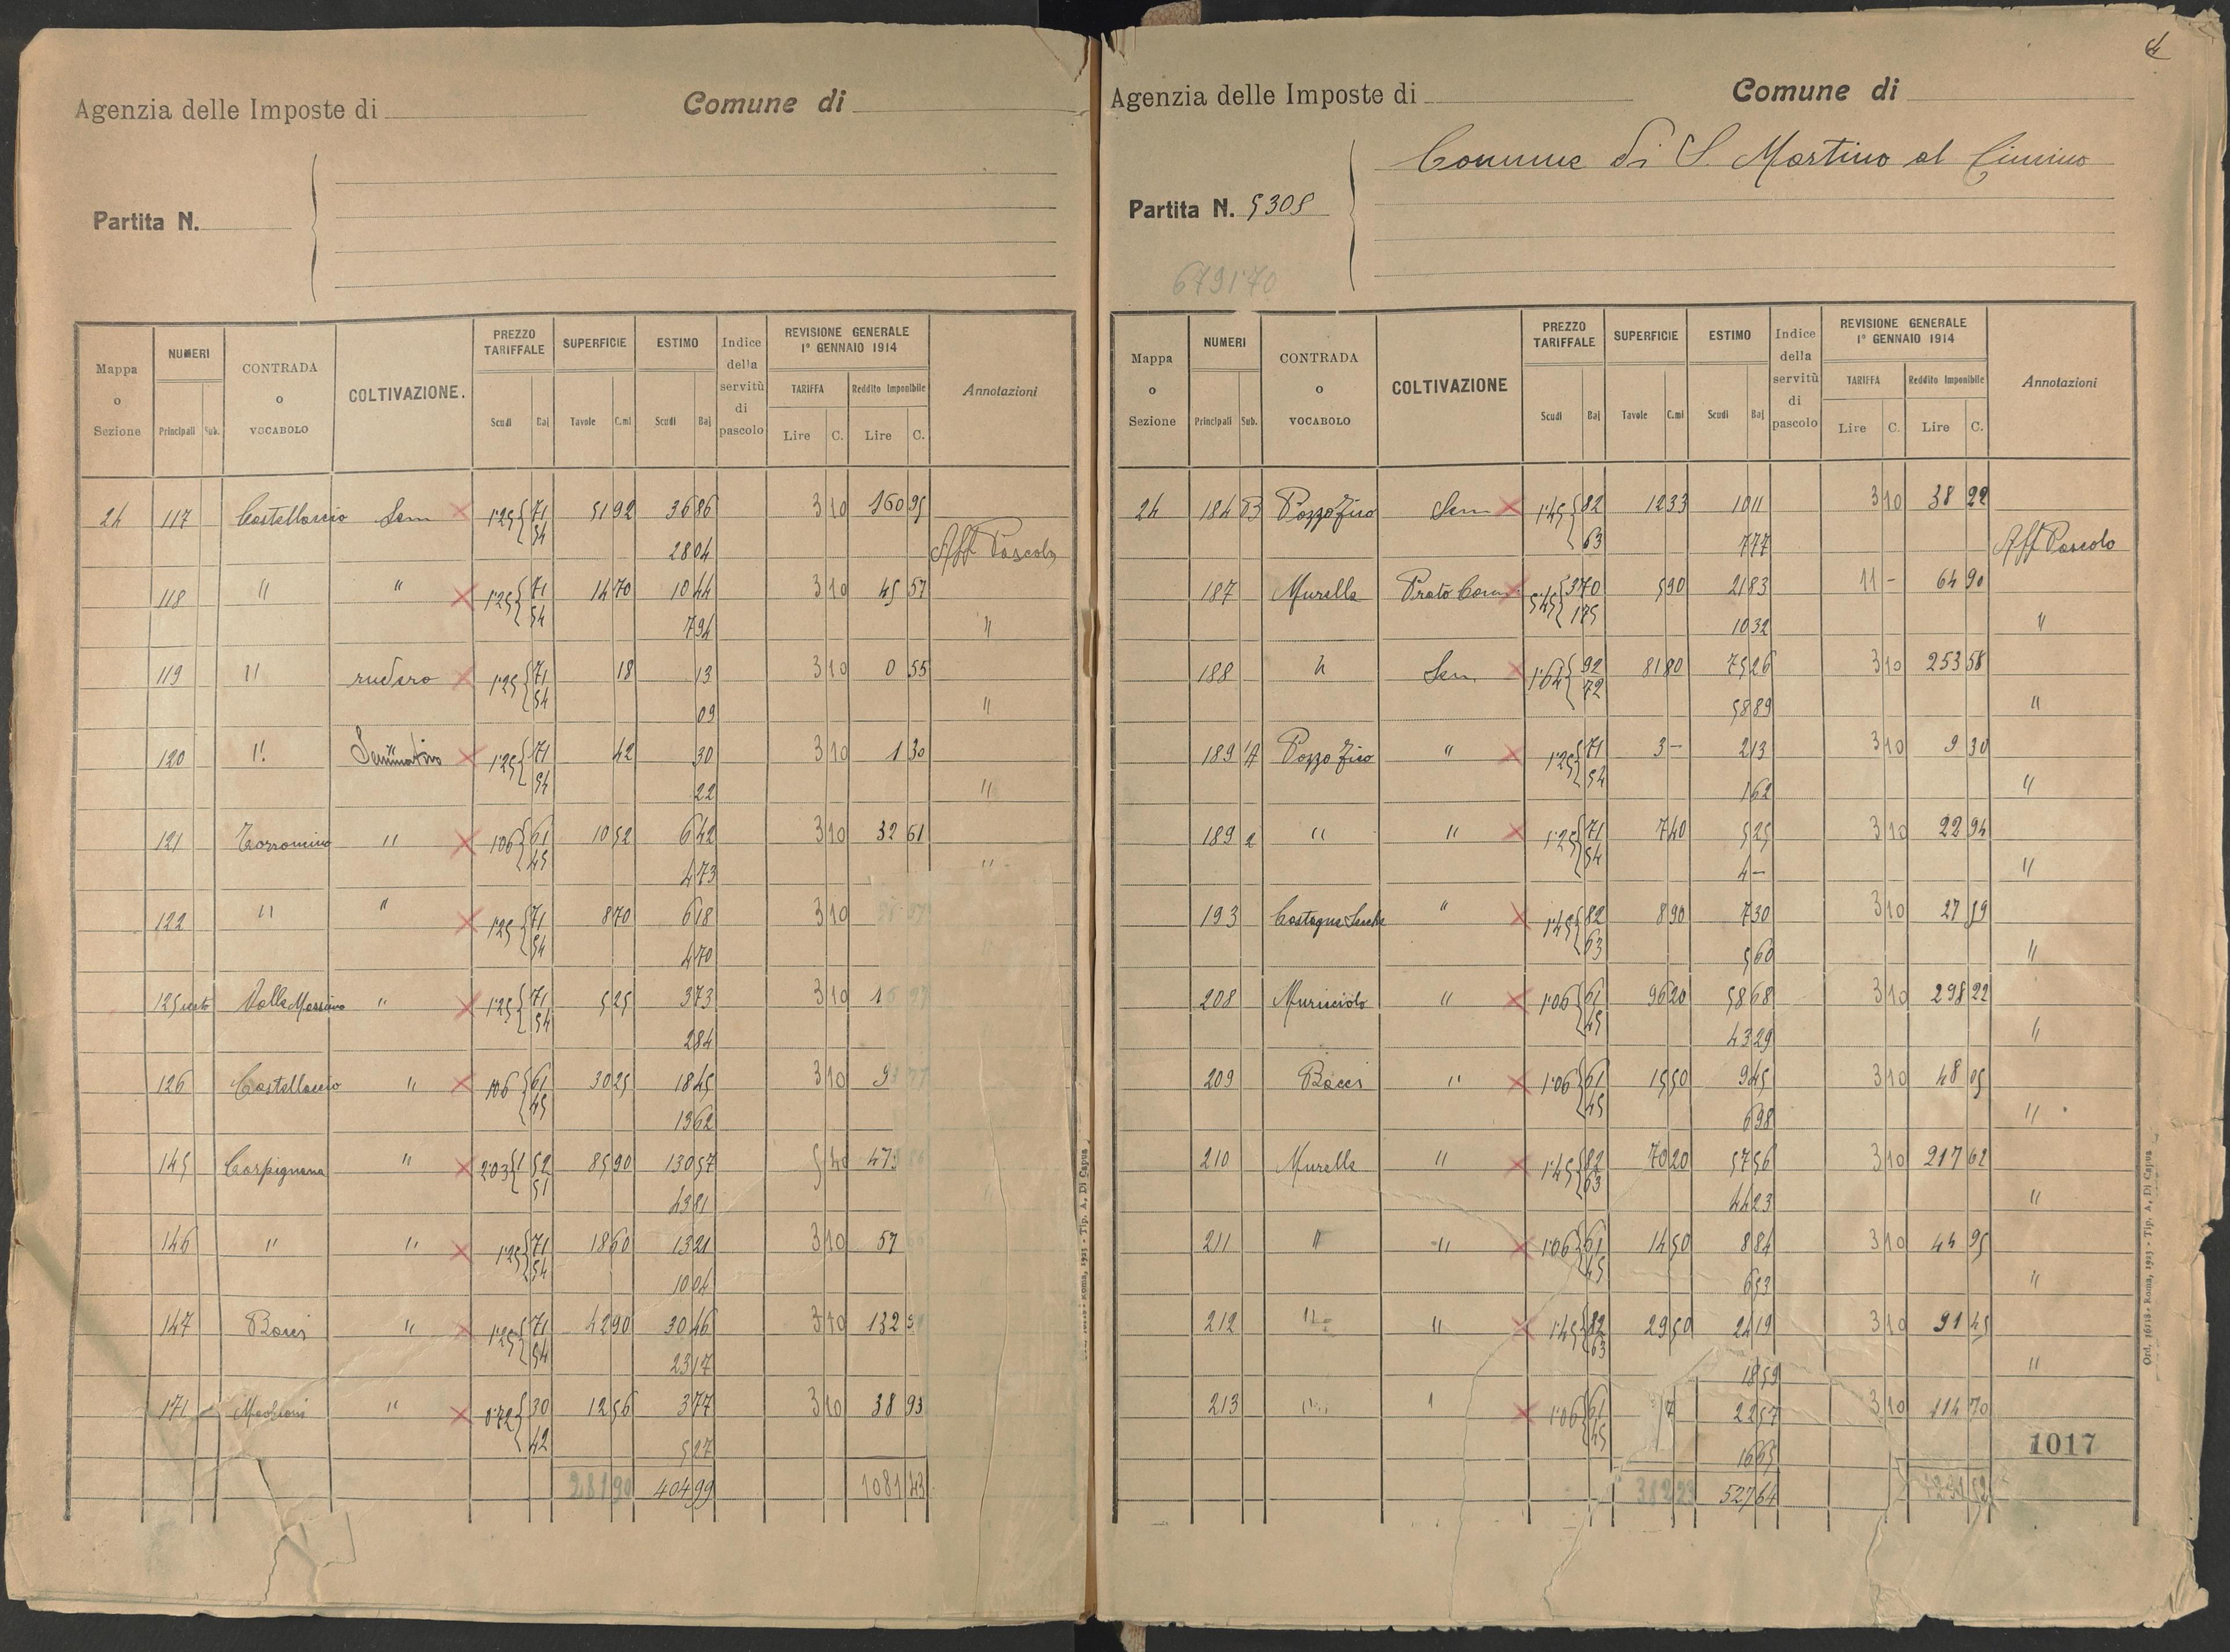 Agenzia delle Imposte di
Comune di
Partita N.
Mappa o Sezione
NUMERI
Principali Sub.
CONTRADA o VOCABOLO
COLTIVAZIONE.
PREZZO TARIFFALE
Scudi Baj
SUPERFICIE
Tavole C.mi
ESTIMO
Scudi Baj
Indice della servitù di pascolo
REVISIONE GENERALE 1° GENNAIO 1914
TARIFFA
Lire C.
Reddito Imponibile
Lire C.
Annotazioni
24 117 Castellaccio Sem 1.25 { 71 51 92 36 86 3 10 160 95
54 28 04 Aff Pascolo
118 " " 1.25 { 71 14 70 10 44 3 10 45 57
54 7 94 "
119 " rudero 1.25 { 71 18 13 3 10 0 55
54 09 "
120 " Seminativo 1.25 { 71 42 30 3 10 1 30
54 22 "
121 " 1.06 { 61 10 52 6 42 3 10 32 61
45 4 73 "
122 " " 1.25 { 71 8 70 6 18 3 10
54 4 70
125 " 1.25 { 71 5 25 3 73 3 10
54 2 84
126 Castellaccio " 1.06 { 61 30 25 18 45 3 10
45 13 62
145 Carpignana " 2.03 { 1 52 85 90 130 57 5 40
51 43 81
146 " " 1.25 { 71 18 60 13 21 3 10 57
54 10 04
147 Bacci " 1.25 { 71 42 90 30 46 3 10 132
54 23 17
171 " 0.72 { 30 12 56 3 77 3 10 38 93
42 5 27
281 90 404 99 1081 43
Agenzia delle Imposte di
Comune di
Comune di S. Martino al Cimino
Partita N. 5305
6791.70
Mappa o Sezione
NUMERI
Principali Sub.
CONTRADA o VOCABOLO
COLTIVAZIONE
PREZZO TARIFFALE
Scudi Baj
SUPERFICIE
Tavole C.mi
ESTIMO
Scudi Baj
Indice della servitù di pascolo
REVISIONE GENERALE 1° GENNAIO 1914
TARIFFA
Lire C.
Reddito Imponibile
Lire C.
Annotazioni
24 184 Sem 1.45 { 82 12 33 10 11 3 10 38 22
63 7 77 Aff Pascolo
187 Murella Prato 5.45 { 3 70 5 90 21 83 11 - 64 90
1 75 10 32 "
188 " Sem 1.64 { 92 81 80 75 26 3 10 253 58
72 58 89 "
189 " 1.25 { 71 3 - 2 13 3 10 9 30
54 1 62 "
189 2 " " 1.25 { 71 7 40 5 25 3 10 22 94
54 4 - "
193 " 1.45 { 82 8 90 7 30 3 10 27 59
63 5 60 "
208 Murisciolo " 1.06 { 61 96 20 58 68 3 10 298 22
45 43 29 "
209 Bacci " 1.06 { 61 15 50 9 45 3 10 48 05
45 6 98 "
210 Murella " 1.45 { 82 70 20 57 56 3 10 217 62
63 44 23 "
211 " " 1.06 { 61 14 50 8 84 3 10 44 95
45 6 53 "
212 " " 1.45 { 82 29 50 24 19 3 10 91 45
63 18 59 "
213 " 1.06 { 61 22 57 3 10 114 70
45 16 65
1017
527 64
Ord. 16118 - Roma, 1923 - Tip. A. Di Capua